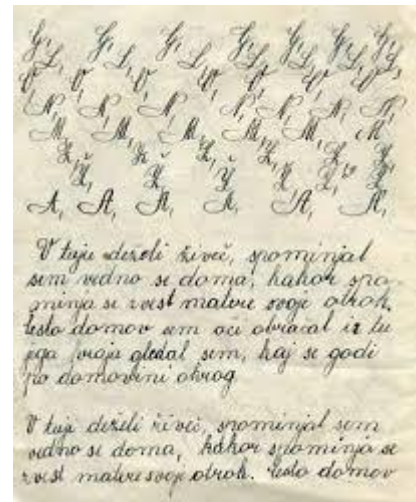 G, G, G, G, G, G, G,
L, L, L, L, L, L, L,
V, V, V, V, V, V, V,
N, N, N, N, N, N, N,
M, M, M, M, M, M,
Z, Z, Z, Z, Z, Z,
Ž, Ž, Ž, Ž, Ž,
A, A, A, A, A, A,
V tuji deželi živeč, spominjal
sem vedno se doma, kakor spo-
minja se zvest matere svoje otrok.
Često domov sem oči obračal iz tu
jega kraja gledal sem, kaj se godi
po domovini okrog
V tuji deželi živeč, spominjal sem
vedno se doma, kakor spominja se
zvest matere svoje otrok. Često domov